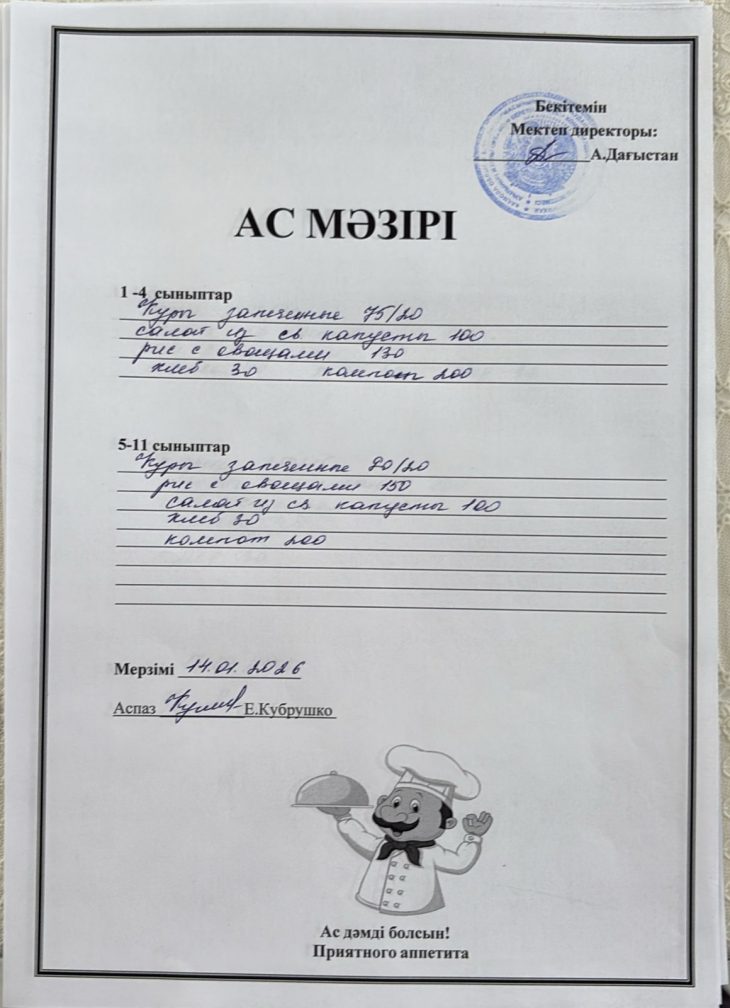 Бекітемін
Мектеп директоры:
А.Дағыстан
АС МӘЗІРІ
1 -4 сыныптар
Куры запеченные 75/20
салат из св капусты 100
рис с овощами 130
хлеб 30 компот 200
5-11 сыныптар
Куры запеченные 80/20
рис с овощами 150
салат из св капусты 100
хлеб 30
компот 200
Мерзімі 14.01.2026
Аспаз Е.Кубрушко
Ас дәмді болсын!
Приятного аппетита